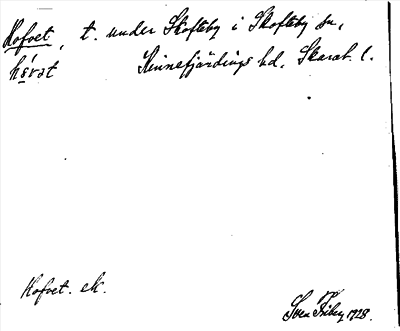 Hofvet, t. under Skofteby i Skofteby sn,
håvət Kinnefjärdings hd. Skarab. l.
Hofvet. ek.
Sven Friberg 1928.